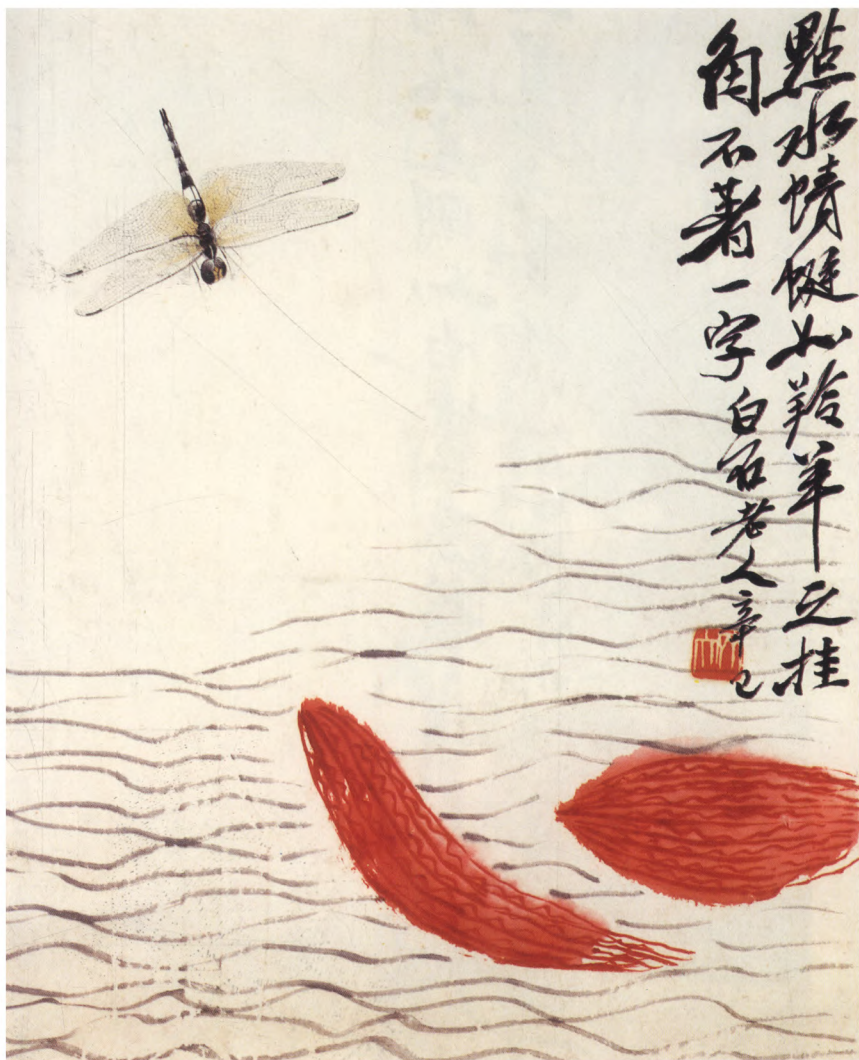 點水蜻蜓如羚羊之挂
角不著一字白石老人辛巳